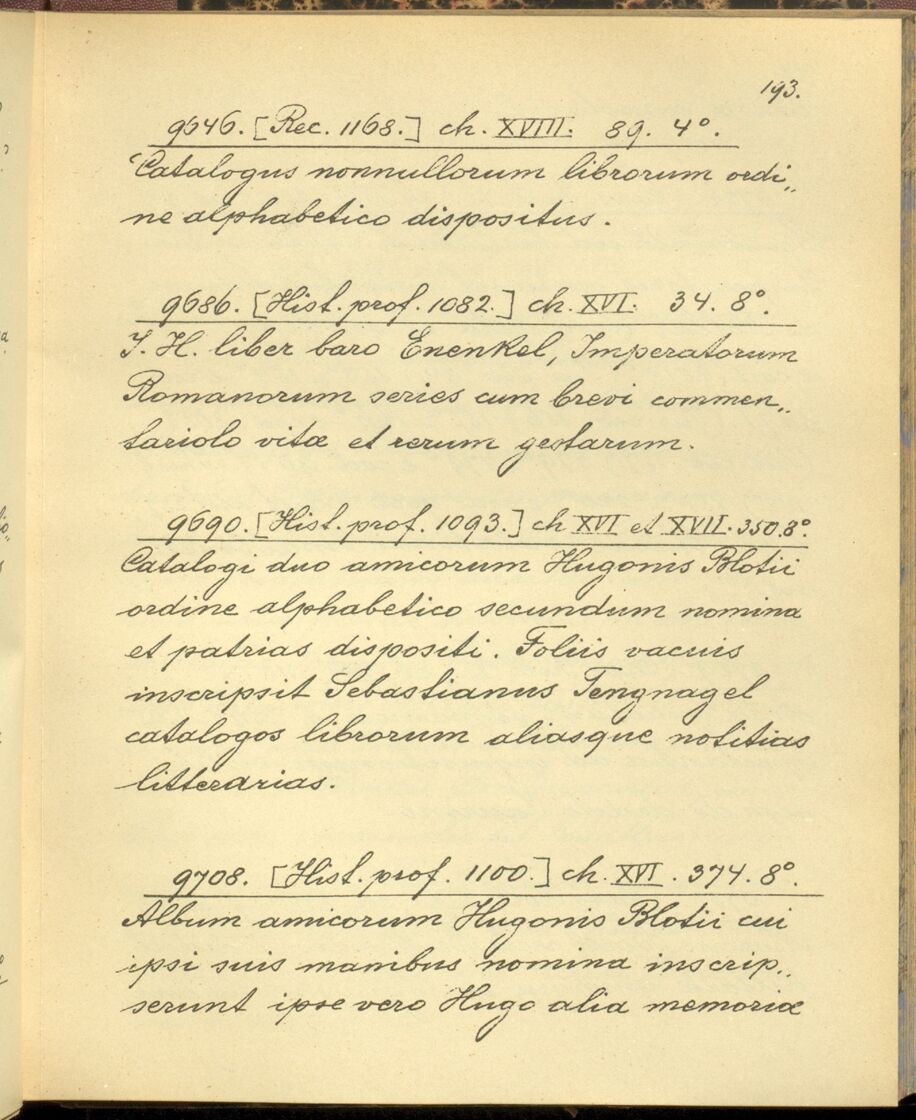 193.
9646. [Rec. 1168.] ch. XVIII. 89. 4°.
Catalogus nonnullorum librorum ordi„
ne alphabetico dispositus.
9686. [Hist. prof. 1082.] ch. XVI. 34. 8°.
J. H. liber baro Enenkel, Imperatorum
Romanorum series cum brevi commen„
tariolo vitæ et rerum gestarum.
9690. [Hist. prof. 1093.] ch XVI et XVII. 350. 8°.
Catalogi duo amicorum Hugonis Blotii
ordine alphabetico secundum nomina
et patrias dispositi. Foliis vacuis
inscripsit Sebastianus Tengnagel
catalogos librorum aliasque notitias
litterarias.
9708. [Hist. prof. 1100.] ch. XVI. 374. 8°.
Album amicorum Hugonis Blotii cui
ipsi suis manibus nomina inscrip„
serunt ipse vero Hugo alia memoriæ